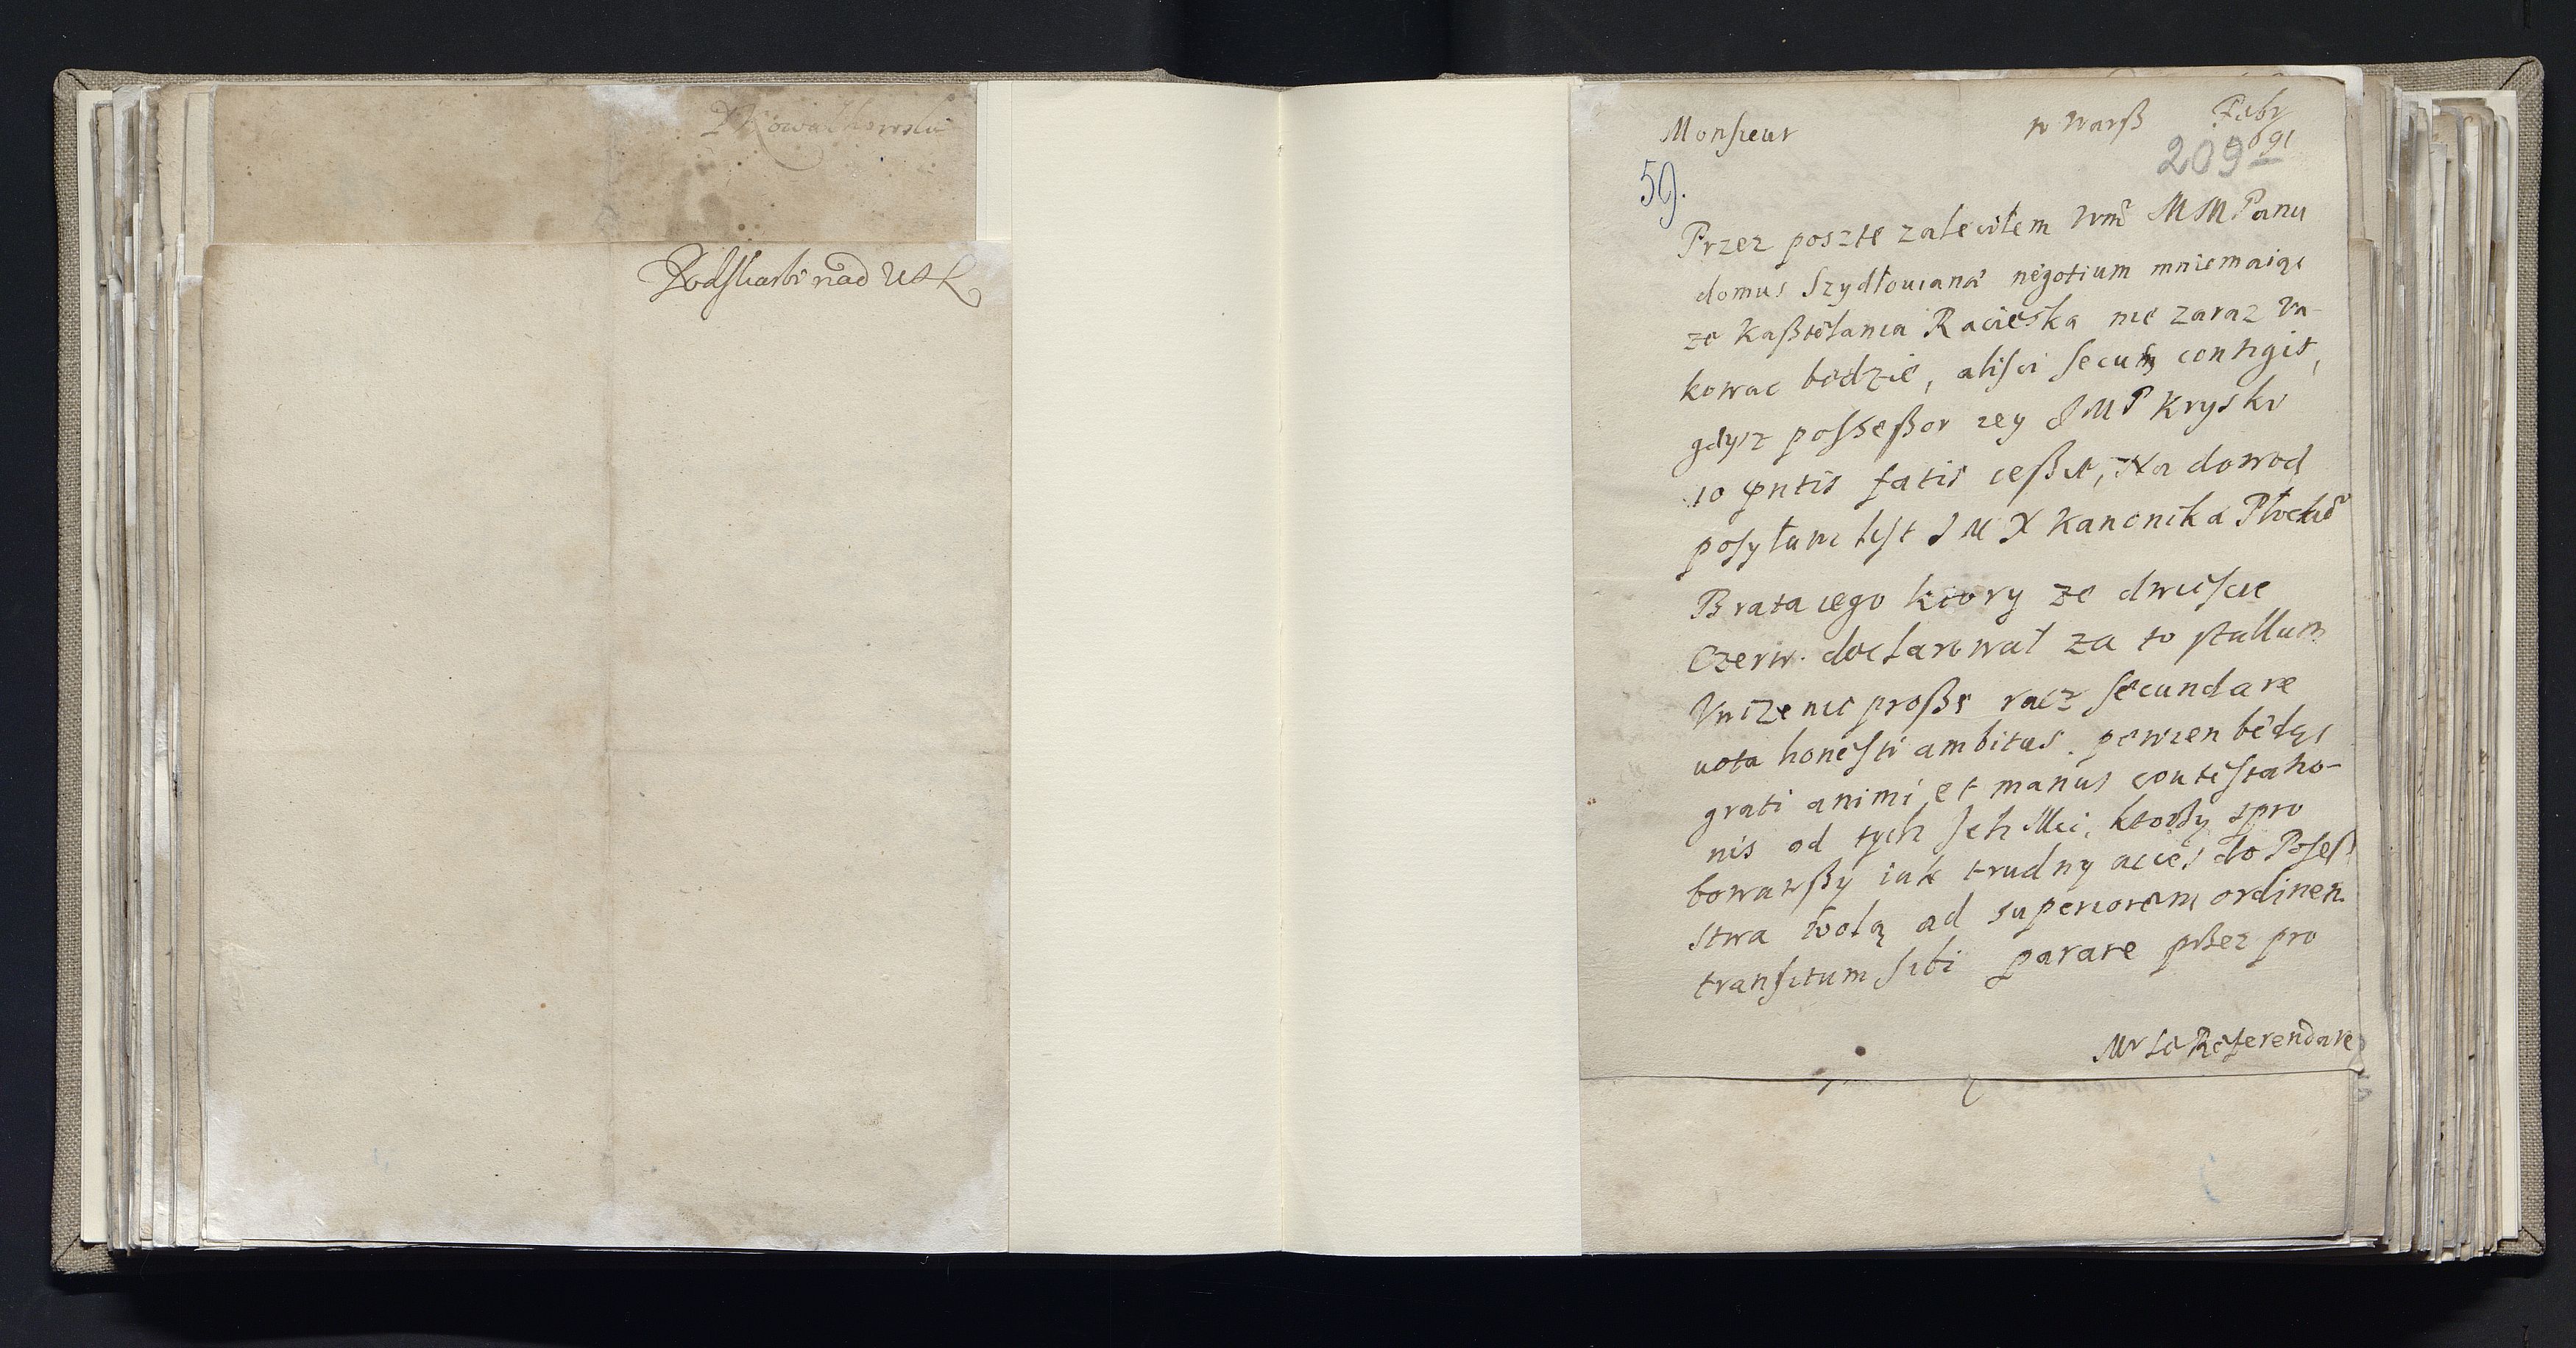 P Kowalkowski
Podskarbi nad WXL
Monsieur w Warß Febr
691
209
59.
Przez posztę zaleciłem Wm MM Panu
domus Szydłoviana negotium mniemaiąc
ze Kaßtelania Racięska nie zaraz va-
kowac będzie, alisci secus contigit,
gdysz possessor iey JMP Kryski
10 pntis fatis ceßit, Na dowod
posyłam list J M X Kanonika Płockie
Brata iego ktory ze dwiescie
Czerw. declarował za to stallum
Vnizenie proßę racz secundare
vota honesti ambitus. pewien będąc
grati animi et manus contestatio-
nis od tych Ich Mci, ktorzy spro
bowawßy iak trudny acces do Posel
stwa wolą ad superiorem ordinem
transitum sibi parare przez pro
Mr le Referendare